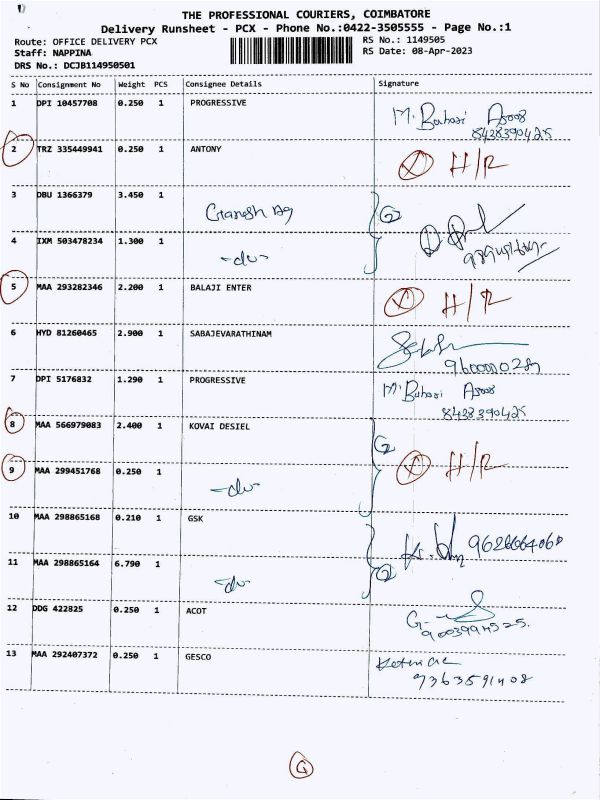 THE PROFESSIONAL COURIERS, COIMBATORE
Delivery Runsheet - PCX - Phone No.:0422-3505555 - Page No.:1
Route: OFFICE DELIVERY PCX RS No.: 1149505
Staff: NAPPINA RS Date: 08-Apr-2023
DRS No.: DCJB114950501
S No Consignment No Weight PCS Consignee Details Signature
1 DPI 10457708 0.250 1 PROGRESSIVE
8428390425
2 TRZ 335449941 0.250 1 ANTONY X H/R
3 DBU 1366379 3.450 1 Ganesh Ag 2
4 IXM 503478234 1.300 1 -do-
5 MAA 293282346 2.200 1 BALAJI ENTER X H/R
6 HYD 81260465 2.900 1 SABAJEVARATHINAM
7 DPI 5176832 1.290 1 PROGRESSIVE
8428390425
8 MAA 566979083 2.400 1 KOVAI DESIEL 2
9 MAA 299451768 0.250 1 -do- X H/R
10 MAA 298865168 0.210 1 GSK
11 MAA 298865164 6.790 1 -do- 2
12 DDG 422825 0.250 1 ACOT
13 MAA 292407372 0.250 1 GESCO